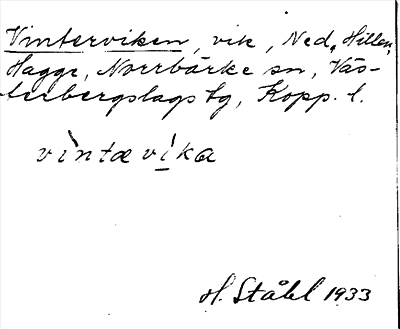 Vinterviken, vik, Ned. Hillen,
Hagge, Norrbärke sn, Väs-
terbergslags tg, Kopp. l.
vìntæ vì̱ka
H. Ståhl 1933